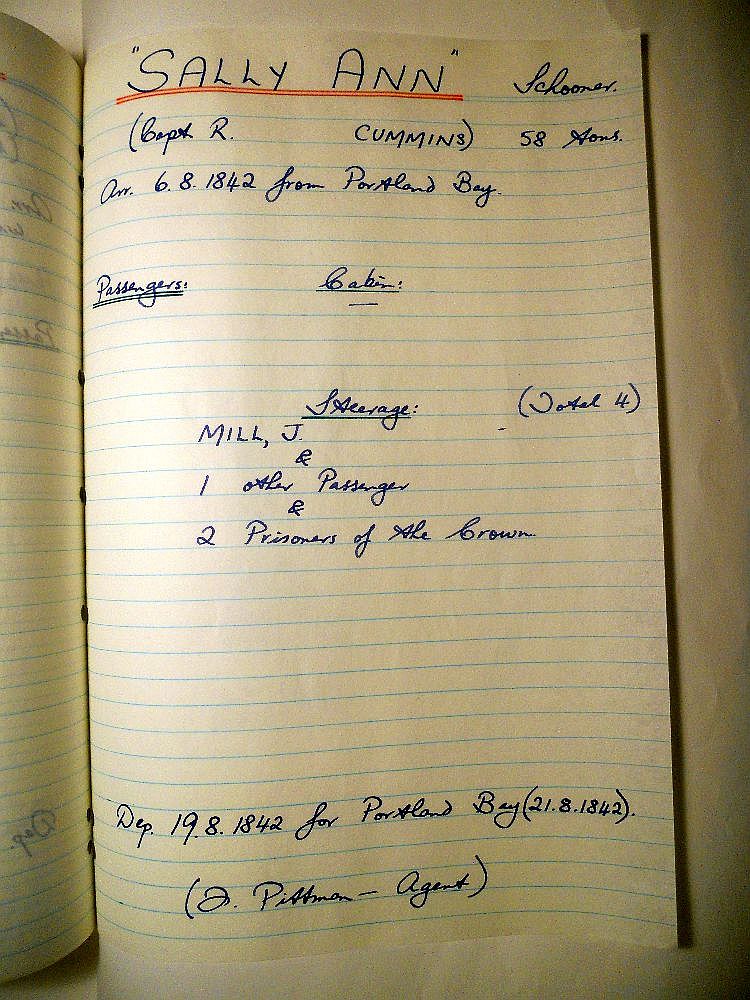 "SALLY ANN" Schooner.
(Capt R. CUMMINS) 58 tons.
Arr. 6.8.1842 from Portland Bay.
Passengers: Cabin:
—
Steerage: (Total 4)
MILL, J.
&
1 other Passenger
&
2 Prisoners of the Crown
Dep. 19.8.1842 for Portland Bay (21.8.1842).
(J. Pittman — Agent)